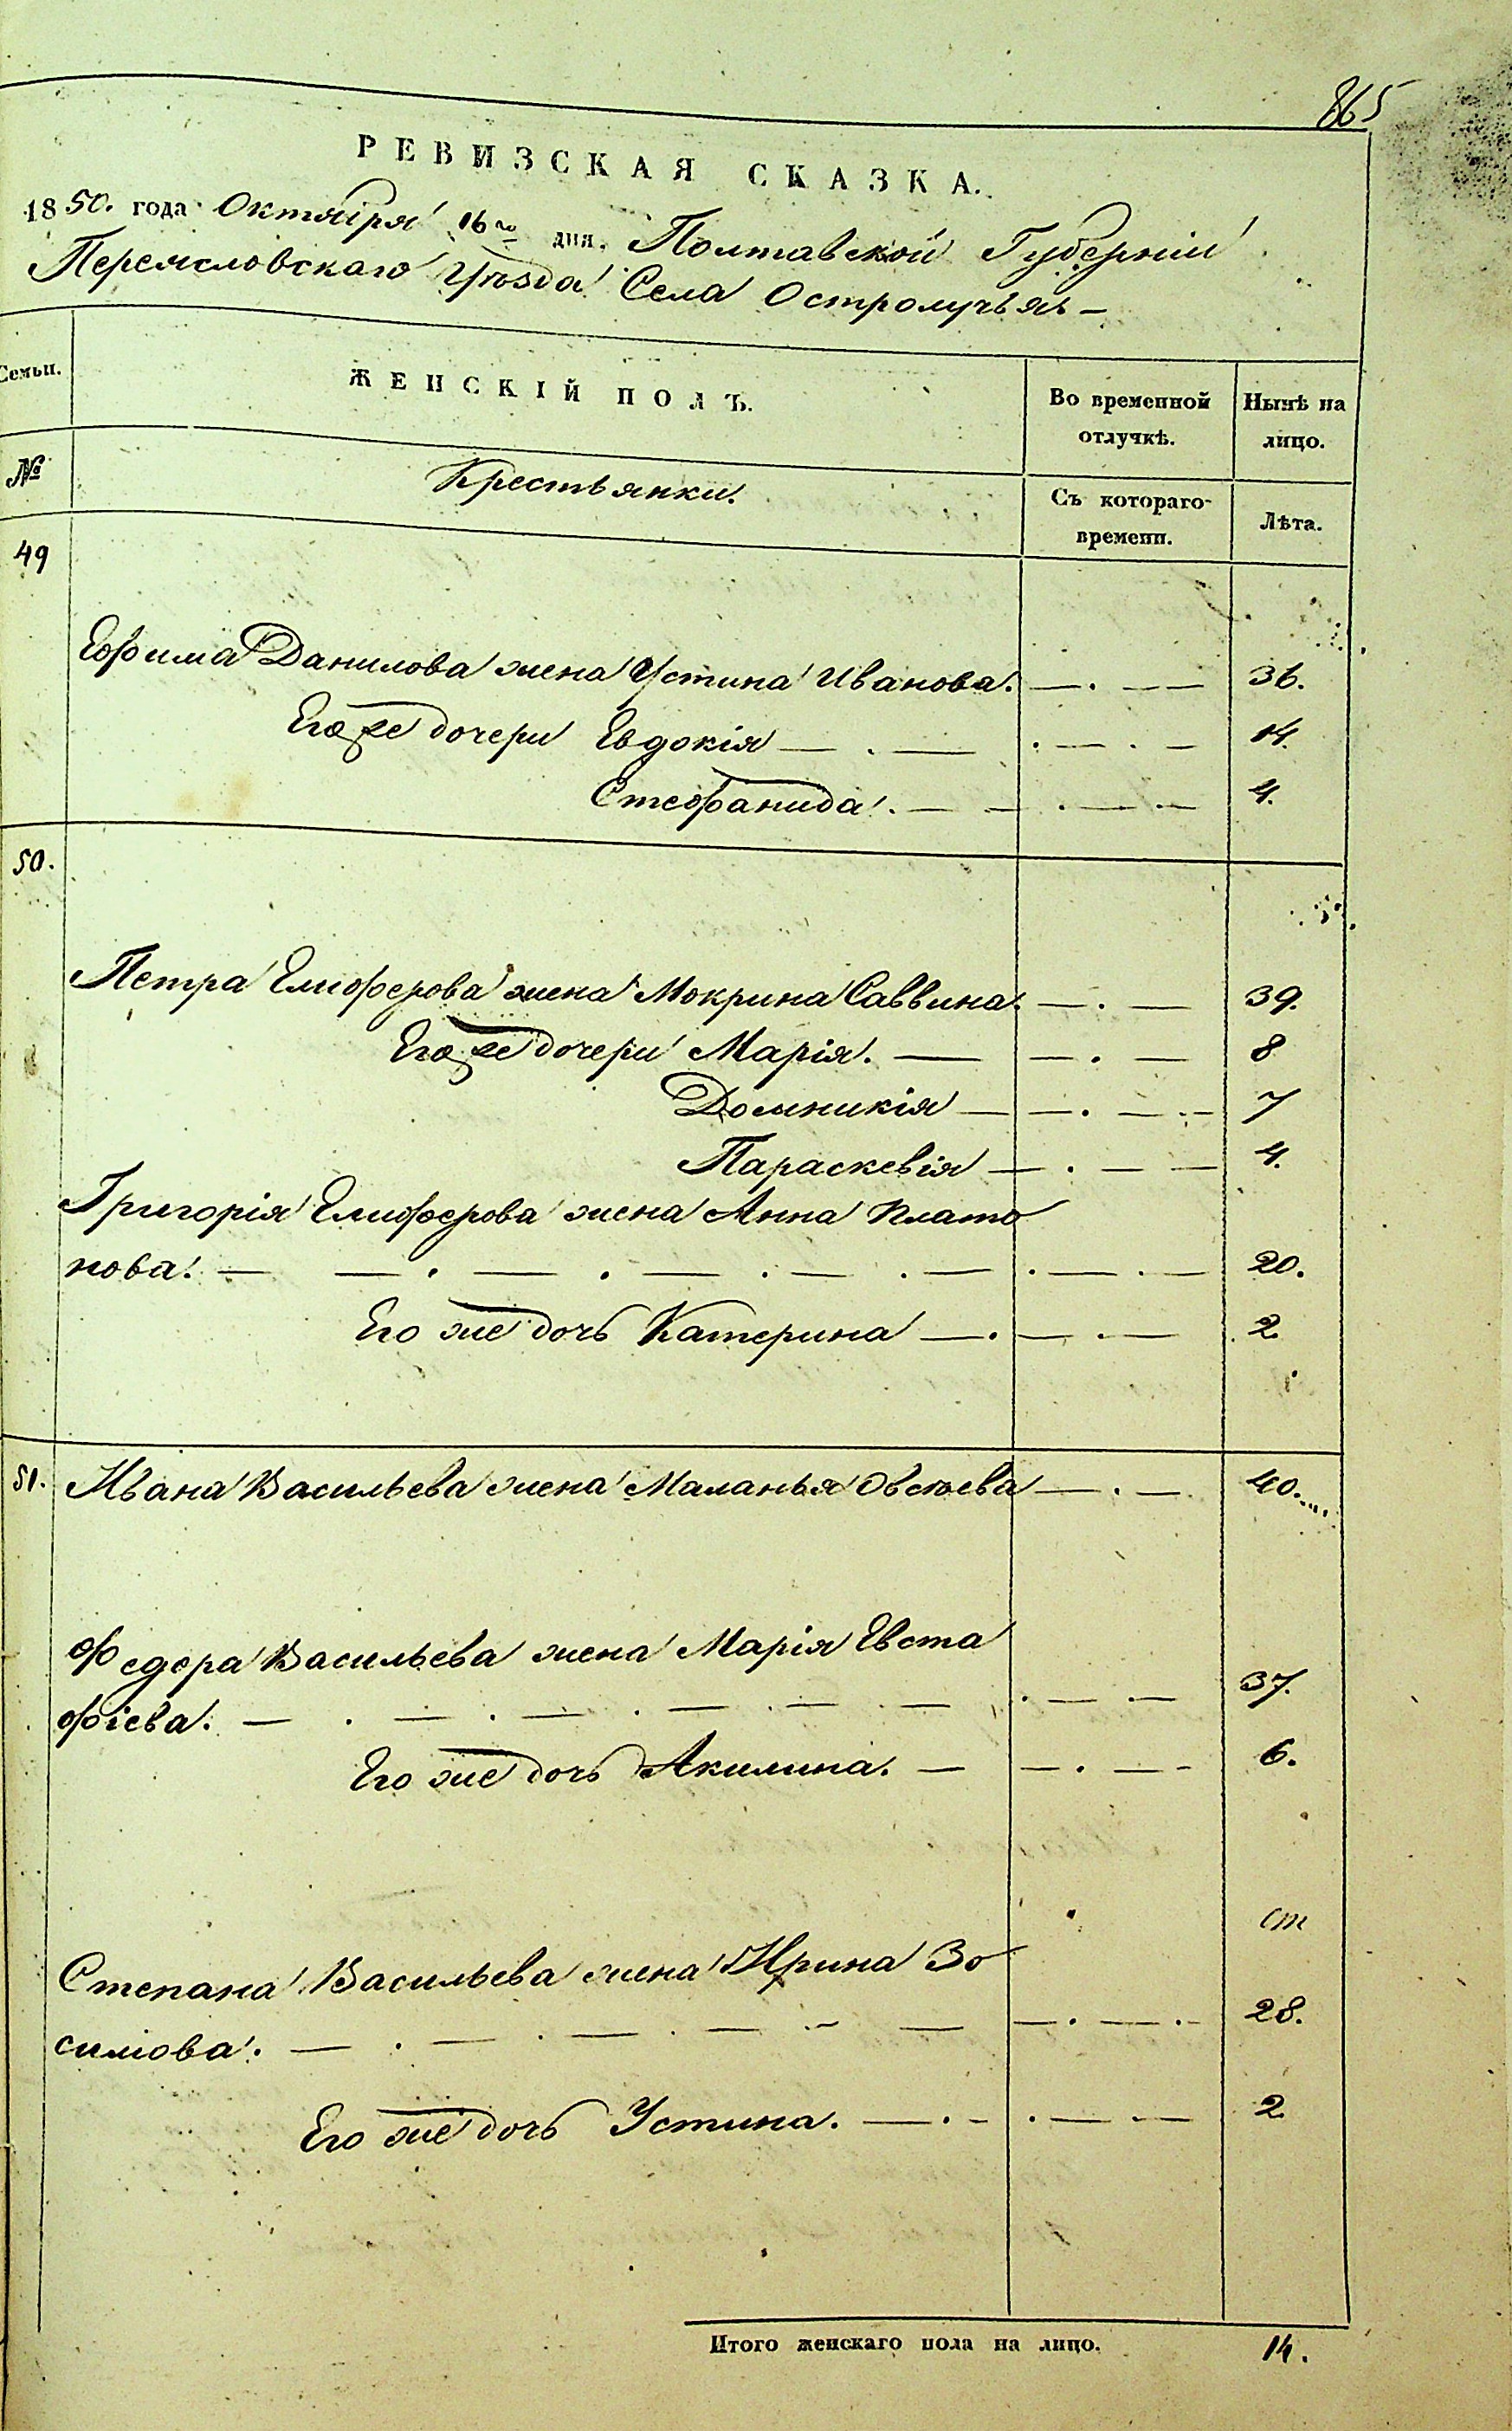 865
РЕВИЗСКАЯ СКАЗКА.
1850. года Октября 16го дня. Полтавской Губерніи
Переясловскаго Уѣзда Села Остролучья
Семьи.
ЖЕНСКІЙ ПОЛЪ.
Во временной отлучкѣ.
Нынѣ на лицо.
№
Крестьянки.
Съ котораго времени.
Лѣта.
49
Ефима Данилова жена Устина Иванова. 36.
Его же дочери Евдокія 14.
Стефанида. 4.
50.
Петра Елиферова жена Мокрина Саввина. 39.
Его же дочери Марія. 8
Домникія 7
Параскевія 4.
Григорія Елиферова жена Анна Плато
нова. 20.
Его же дочь Катерина 2
51. Ивана Васильева жена Маланья Овсѣева 40.
Федора Васильева жена Марія Евста
фіева. 37.
Его же дочь Акилина. 6.
ст
Степана Васильева жена Ирина Зо
симова. 28.
Его же дочь Устина. 2
Итого женскаго пола на лицо. 14.